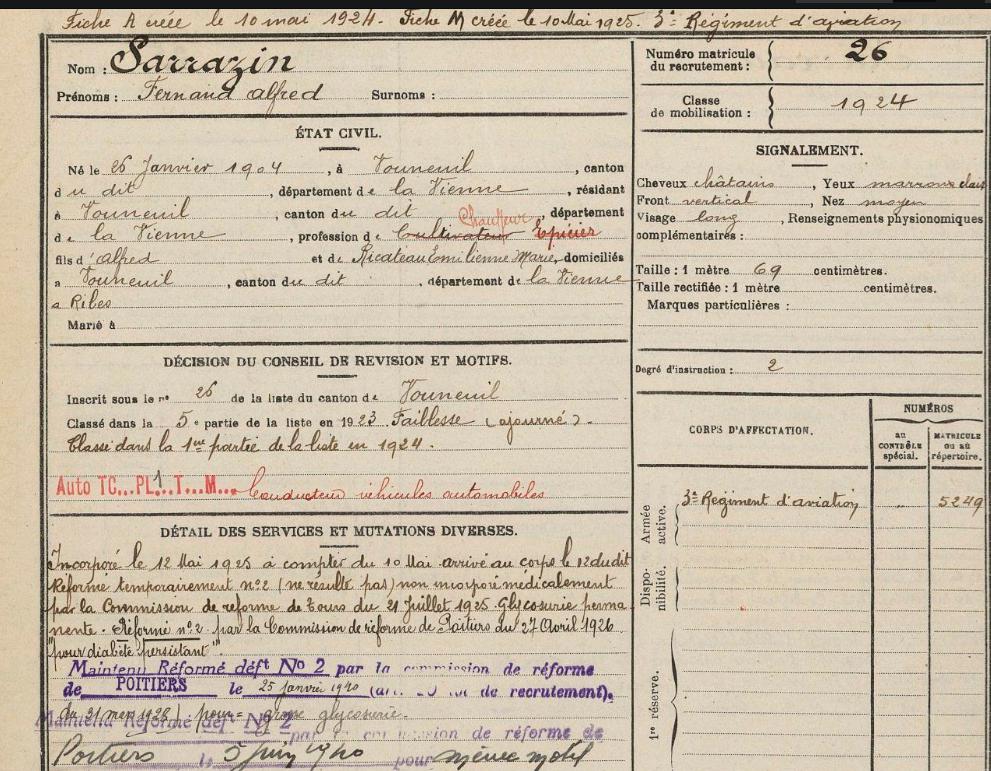 Fiche A créée le 10 mai 1924. Fiche M créée le 10 Mai 1925. 3e Régiment d'aviation
Nom : Sarrazin
Prénoms : Fernand alfred Surnoms :
ÉTAT CIVIL.
Né le 26 Janvier 1904, à Vouneuil, canton
du dit, département de la Vienne, résidant
à Vouneuil, canton du dit, département
Chauffeur
de la Vienne, profession de Cultivateur Epicier
fils d'alfred et de Ricateau Emilienne Marie, domiciliés
à Vouneuil, canton du dit, département de la Vienne
a Ribes
Marié à
DÉCISION DU CONSEIL DE REVISION ET MOTIFS.
Inscrit sous le no 26 de la liste du canton de Vouneuil
Classé dans la 5e partie de la liste en 1923 Faiblesse (ajourné).
Classé dans la 1re partie de la liste en 1924.
Auto TC...PL1...T...M... Conducteur véhicules automobiles
DÉTAIL DES SERVICES ET MUTATIONS DIVERSES.
Incorporé le 12 Mai 1925 à compter du 10 Mai arrivé au corps le 12 du dit
Réformé temporairement no2 (ne résulte pas) non incorporé médicalement
par la Commission de réforme de Tours du 21 Juillet 1925. Glycosurie perma-
nente. Réformé no 2 par la Commission de réforme de Poitiers du 27 Avril 1926
"pour diabète persistant".
Maintenu Réformé déft No 2 par la commission de réforme
de POITIERS le 25 janvier 1940 de recrutement).
pour grosse glycosurie.
Maintenu Réformé déft No 2 par commission de réforme de
Poitiers le 5 juin 1940 pour même motif
Numéro matricule du recrutement : 26
Classe de mobilisation : 1924
SIGNALEMENT.
Cheveux châtains, Yeux marrons clair
Front vertical, Nez moyen
Visage long, Renseignements physionomiques
complémentaires :
Taille : 1 mètre 69 centimètres.
Taille rectifiée : 1 mètre centimètres.
Marques particulières :
Degré d'instruction : 2
CORPS D'AFFECTATION.
NUMÉROS
au CONTRÔLE spécial.
MATRICULE ou au répertoire.
Armée active.
3e Regiment d'aviation 5249
Disponibilité.
1re réserve.